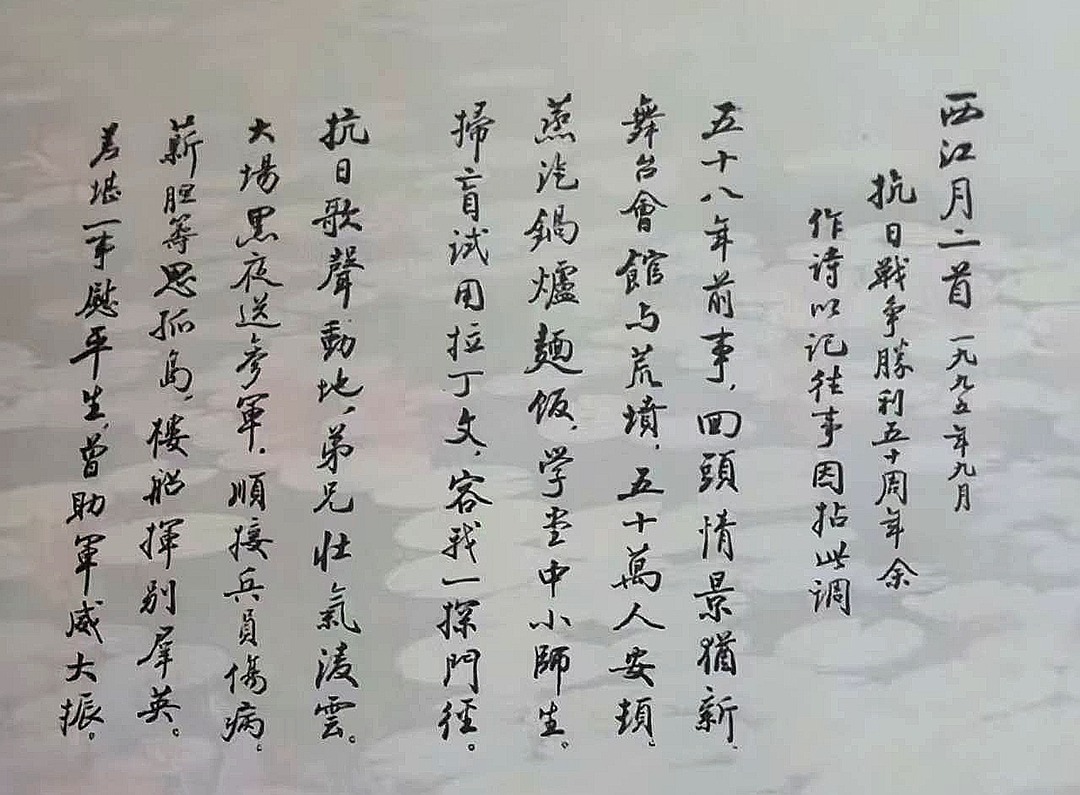 西江月二首 一九九五年九月
抗日戰争勝利五十周年余
作诗以记往事因拈此调
五十八年前事，回頭情景猶新，
舞台會館与荒墳，五十萬人安頓。
蒸汽鍋爐麵饭，学堂中小師生。
掃盲试用拉丁文，容我一探門徑。
抗日歌聲動地，弟兄壮氣淩雲。
大場黑夜送参軍，順接兵員傷病。
薪胆等思孤岛，楼船揮别羣英。
差堪一事慰平生，曾助軍威大振。